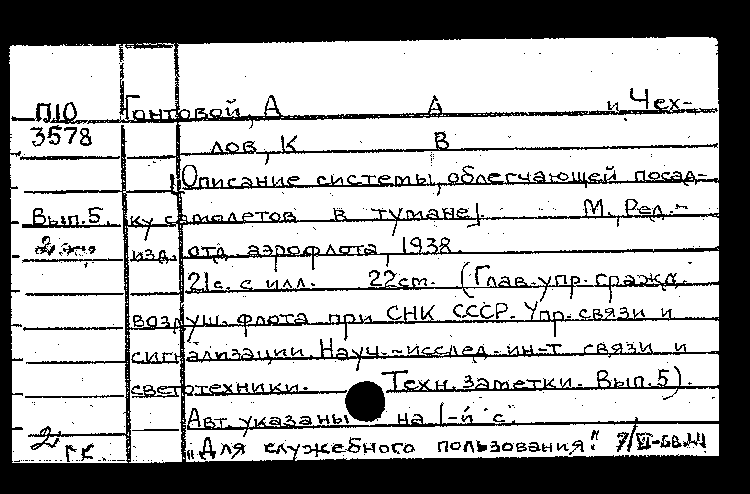 П10 Гонтовой, А А и Чех-
3578 лов, К В
[Описание системы, облегчающей посад-
Вып.5. ку самолетов в тумане]. М., Ред.-
2 изд. отд. аэрофлота, 1938.
21с. с илл. 22см. (Глав. упр. гражд.
воздуш. флота при СНК СССР. Упр. связи и
сигнализации. Науч.-исслед. ин-т связи и
светотехники. Техн. заметки. Вып.5).
Авт. указаны на 1-й с.
2 ГК. "Для служебного пользования".